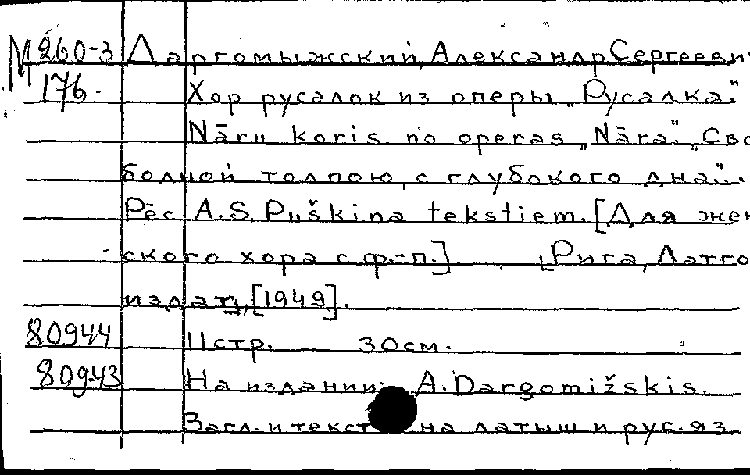 М 260-3 Даргомыжский, Александр Сергееви
176. Хор русалок из оперы „Русалка".
Nāru koris no operas „Nāra". „Сво
бодной толпою, с глубокого дна".
Pēc A.S. Puškina tekstiem. [Для жен
ского хора с ф.-п.]. [Рига, Латго
издат], [1949].
80944 11 стр. 30 см.
80943 На издании: A. Dargomižskis.
Загл. и текст на латыш и рус. яз.